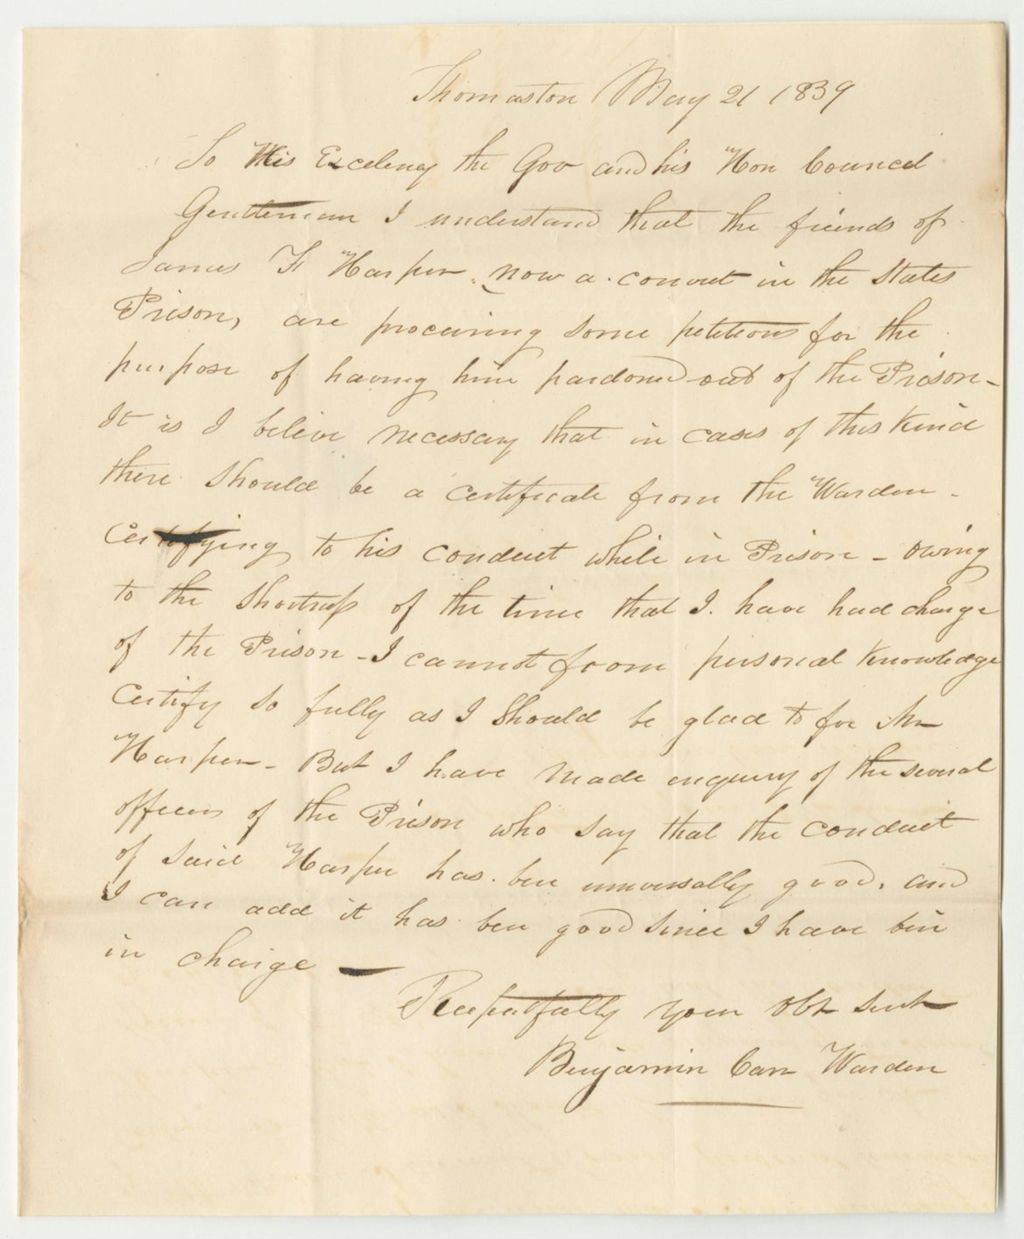 Thomaston May 21 1839
To His Excelency the Gov and his Hon Councel
Gentleman I understand that the friends of
James F Harper, now a convict in the States
Prison, are procuring some petitions for the
purpose of having him pardoned out of the Prison -
It is I believe necessary that in cases of this kind
there should be a certificate from the Warden -
Certifying to his conduct while in Prison - owing
to the shortness of the time that I have had charge
of the Prison - I cannot from personal knowledge
Certify so fully as I should be glad to for Mr
Harper - But I have made enquiry of the several
officers of the Prison who say that the conduct
of said Harper has ben universally good, and
I can add it has ben good since I have bin
in charge —
Respectfully your Obt Servt
Benjamin Carr Warden